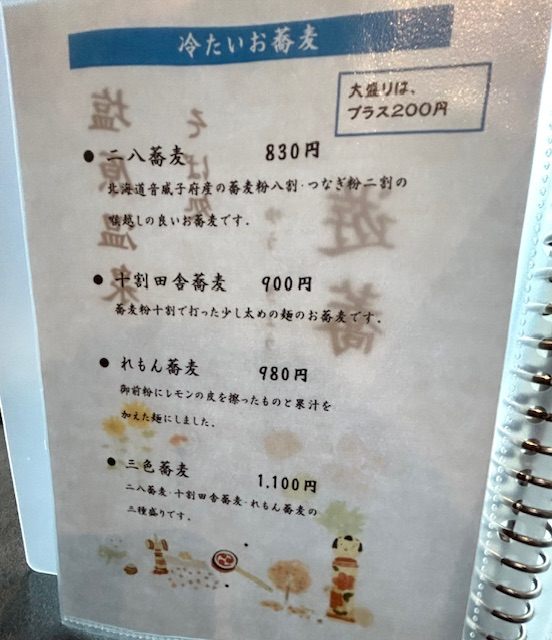 冷たいお蕎麦
大盛りは、
プラス200円
● 二八蕎麦 830円
北海道音威子府産の蕎麦粉八割・つなぎ粉二割の
喉越しの良いお蕎麦です。
● 十割田舎蕎麦 900円
蕎麦粉十割で打った少し太めの麺のお蕎麦です。
● れもん蕎麦 980円
御前粉にレモンの皮を擦ったものと果汁を
加えた麺にしました。
● 三色蕎麦 1,100円
二八蕎麦・十割田舎蕎麦・れもん蕎麦の
三種盛りです。